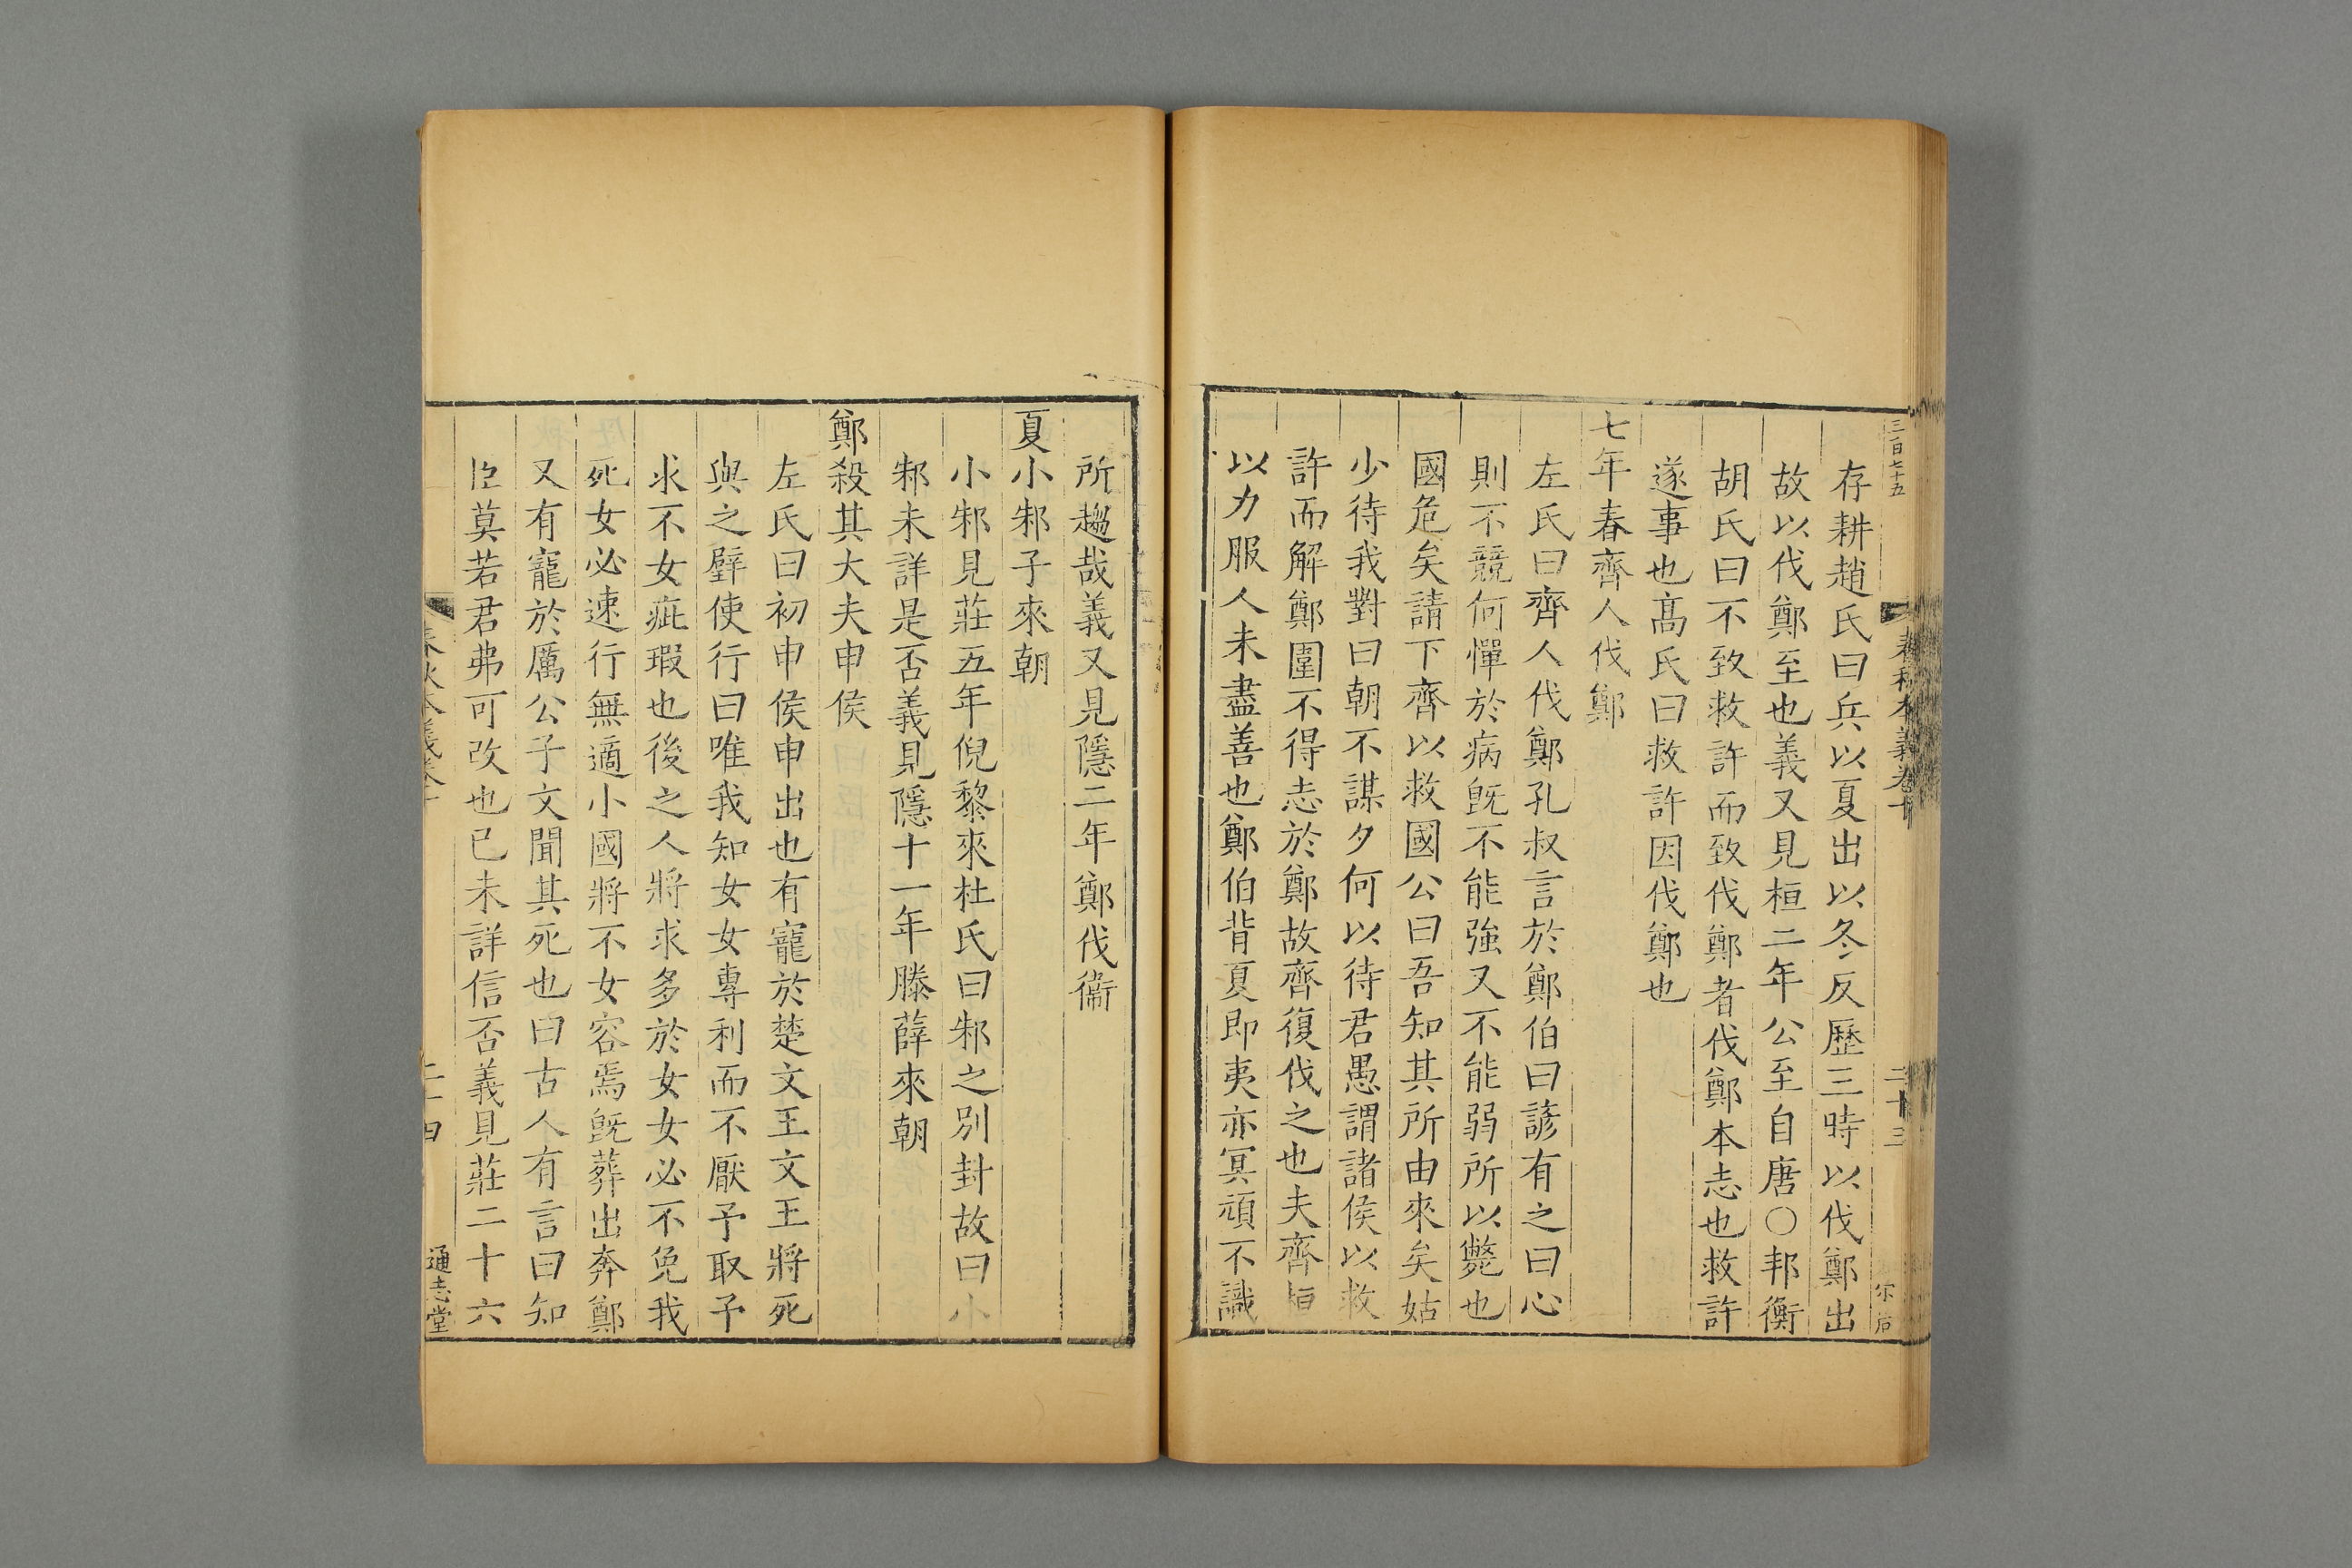 三百七十五
春秋本義卷十
二十三
存耕趙氏曰兵以夏出以冬反歷三時以伐鄭出
故以伐鄭至也義又見桓二年公至自唐〇邦衡
胡氏曰不致救許而致伐鄭者伐鄭本志也救許
遂事也髙氏曰救許因伐鄭也
七年春齊人伐鄭
左氏曰齊人伐鄭孔叔言於鄭伯曰諺有之曰心
則不競何憚於病旣不能強又不能弱所以斃也
國危矣請下齊以救國公曰吾知其所由來矣姑
少待我對曰朝不謀夕何以待君愚謂諸侯以救
許而解鄭圍不得志於鄭故齊復伐之也夫齊桓
以力服人未盡善也鄭伯背夏即夷亦冥頑不識
所趨哉義又見隱二年鄭伐衞
夏小邾子來朝
小邾見莊五年倪黎來杜氏曰邾之別封故曰小
邾未詳是否義見隱十一年滕薛來朝
鄭殺其大夫申侯
左氏曰初申侯申出也有寵於楚文王文王將死
與之璧使行曰唯我知女女專利而不厭予取予
求不女疵瑕也後之人將求多於女女必不免我
死女必速行無適小國將不女容焉旣葬出奔鄭
又有寵於厲公子文聞其死也曰古人有言曰知
臣莫若君弗可改也已未詳信否義見莊二十六
春秋本義卷十
二十四
通志堂